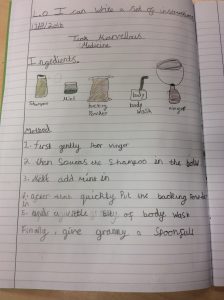 L.O I can write a set of instructions
Took Marvellous
Medicine
Ingredients
Shampoo
Mint
backing
Powder
body
body
wash
vinger
Method
1. first gently Poor vinger
2. then Squeas the Shampoo in the bowl
3. Next add Mint in
4. after that quickly Put the backing Powder
in
5. a little of body wash
Finally, give granny a Spoonfull